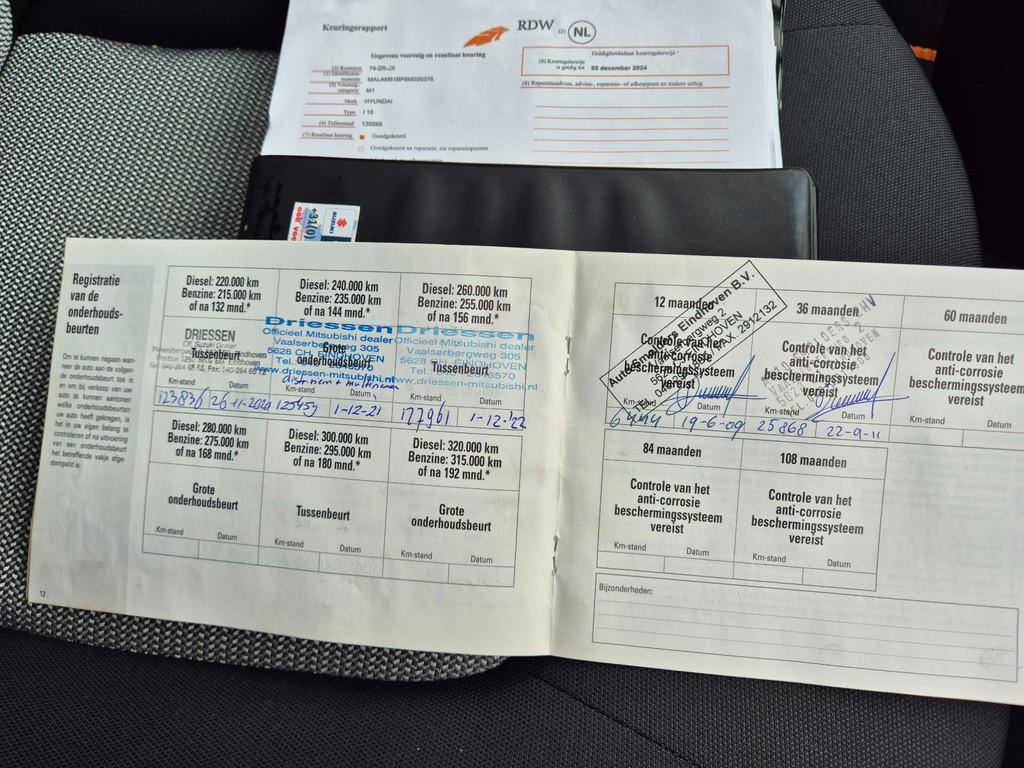 Keuringsrapport
RDW
NL
Gegevens voertuig en resultaat keuring
74-ZR-JX
M1
Merk HYUNDAI
Type I 10
(4) Tellerstand 130588
Goedgekeurd
Goedgekeurd na reparatie, zie reparatiepunten
Geldigheidsduur keuringsbewijs
(8) Keuringsbewijs is geldig tot 05 december 2024
SUZUKI
+31(0)
Registratie
van de
onderhouds-
beurten
Om te kunnen nagaan wan-
neer de auto aan de volgen-
de onderhoudsbeurt toe is
en om bij verkoop van uw
auto te kunnen aantonen
welke onderhoudsbeurten
uw auto heeft gekregen, is
het in uw eigen belang te
controleren of na uitvoering
van een onderhoudsbeurt
het betreffende vakje afge-
stempeld is.
Diesel: 220.000 km
Benzine: 215.000 km
of na 132 mnd.*
DRIESSEN
Off. Suzuki Dealer
Tussenbeurt
Km-stand Datum
123836 26-11-2020
Diesel: 240.000 km
Benzine: 235.000 km
of na 144 mnd.*
Driessen
Officieel Mitsubishi dealer
Vaalserbergweg 305
5628 CH EINDHOVEN
www.driessen-mitsubishi.nl
Grote
onderhoudsbeurt
Km-stand Datum
125459 1-12-21
Diesel: 260.000 km
Benzine: 255.000 km
of na 156 mnd.*
Driessen
Officieel Mitsubishi dealer
Vaalserbergweg 305
5628 CH EINDHOVEN
www.driessen-mitsubishi.nl
Tussenbeurt
Km-stand Datum
127961 1-12-'22
Diesel: 280.000 km
Benzine: 275.000 km
of na 168 mnd.*
Grote
onderhoudsbeurt
Km-stand Datum
Diesel: 300.000 km
Benzine: 295.000 km
of na 180 mnd.*
Tussenbeurt
Km-stand Datum
Diesel: 320.000 km
Benzine: 315.000 km
of na 192 mnd.*
Grote
onderhoudsbeurt
Km-stand Datum
12
12 maanden
Controle van het
anti-corrosie
beschermingssysteem
vereist
Km-stand Datum
6494 19-6-09
36 maanden
Controle van het
anti-corrosie
beschermingssysteem
vereist
Km-stand Datum
25868 22-9-11
60 maanden
Controle van het
anti-corrosie
beschermingssysteem
vereist
Km-stand Datum
84 maanden
Controle van het
anti-corrosie
beschermingssysteem
vereist
Km-stand Datum
108 maanden
Controle van het
anti-corrosie
beschermingssysteem
vereist
Km-stand Datum
Bijzonderheden: